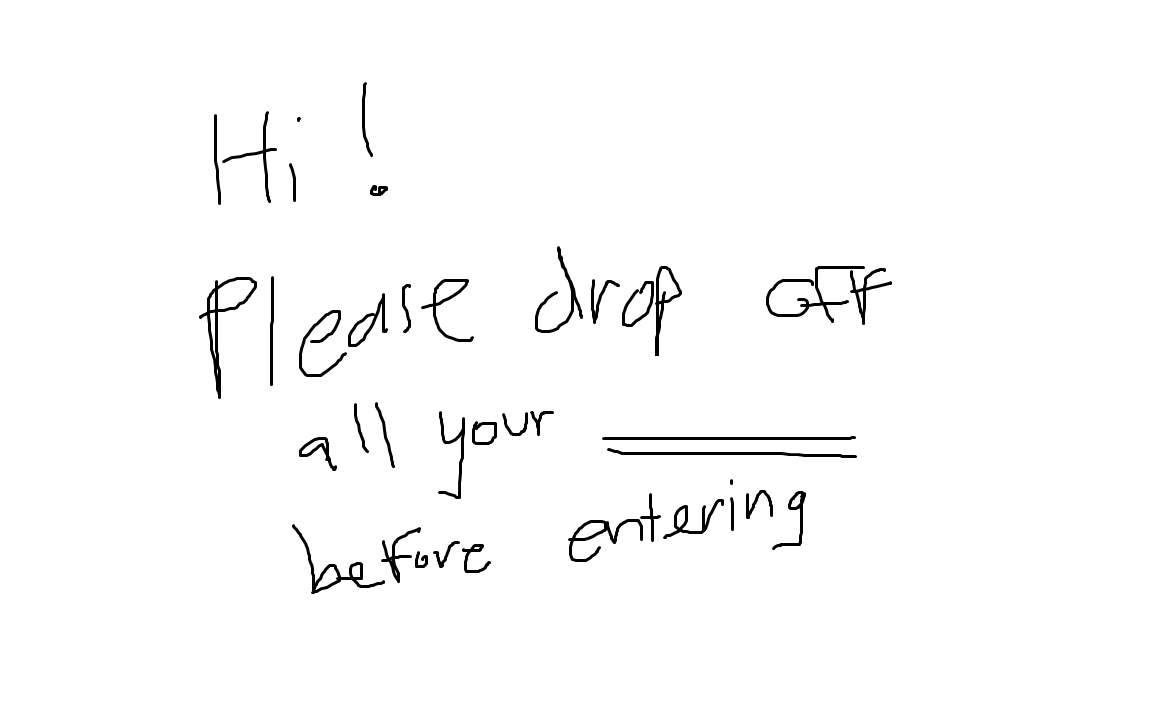 Hi!
Please drop off
all your
before entering